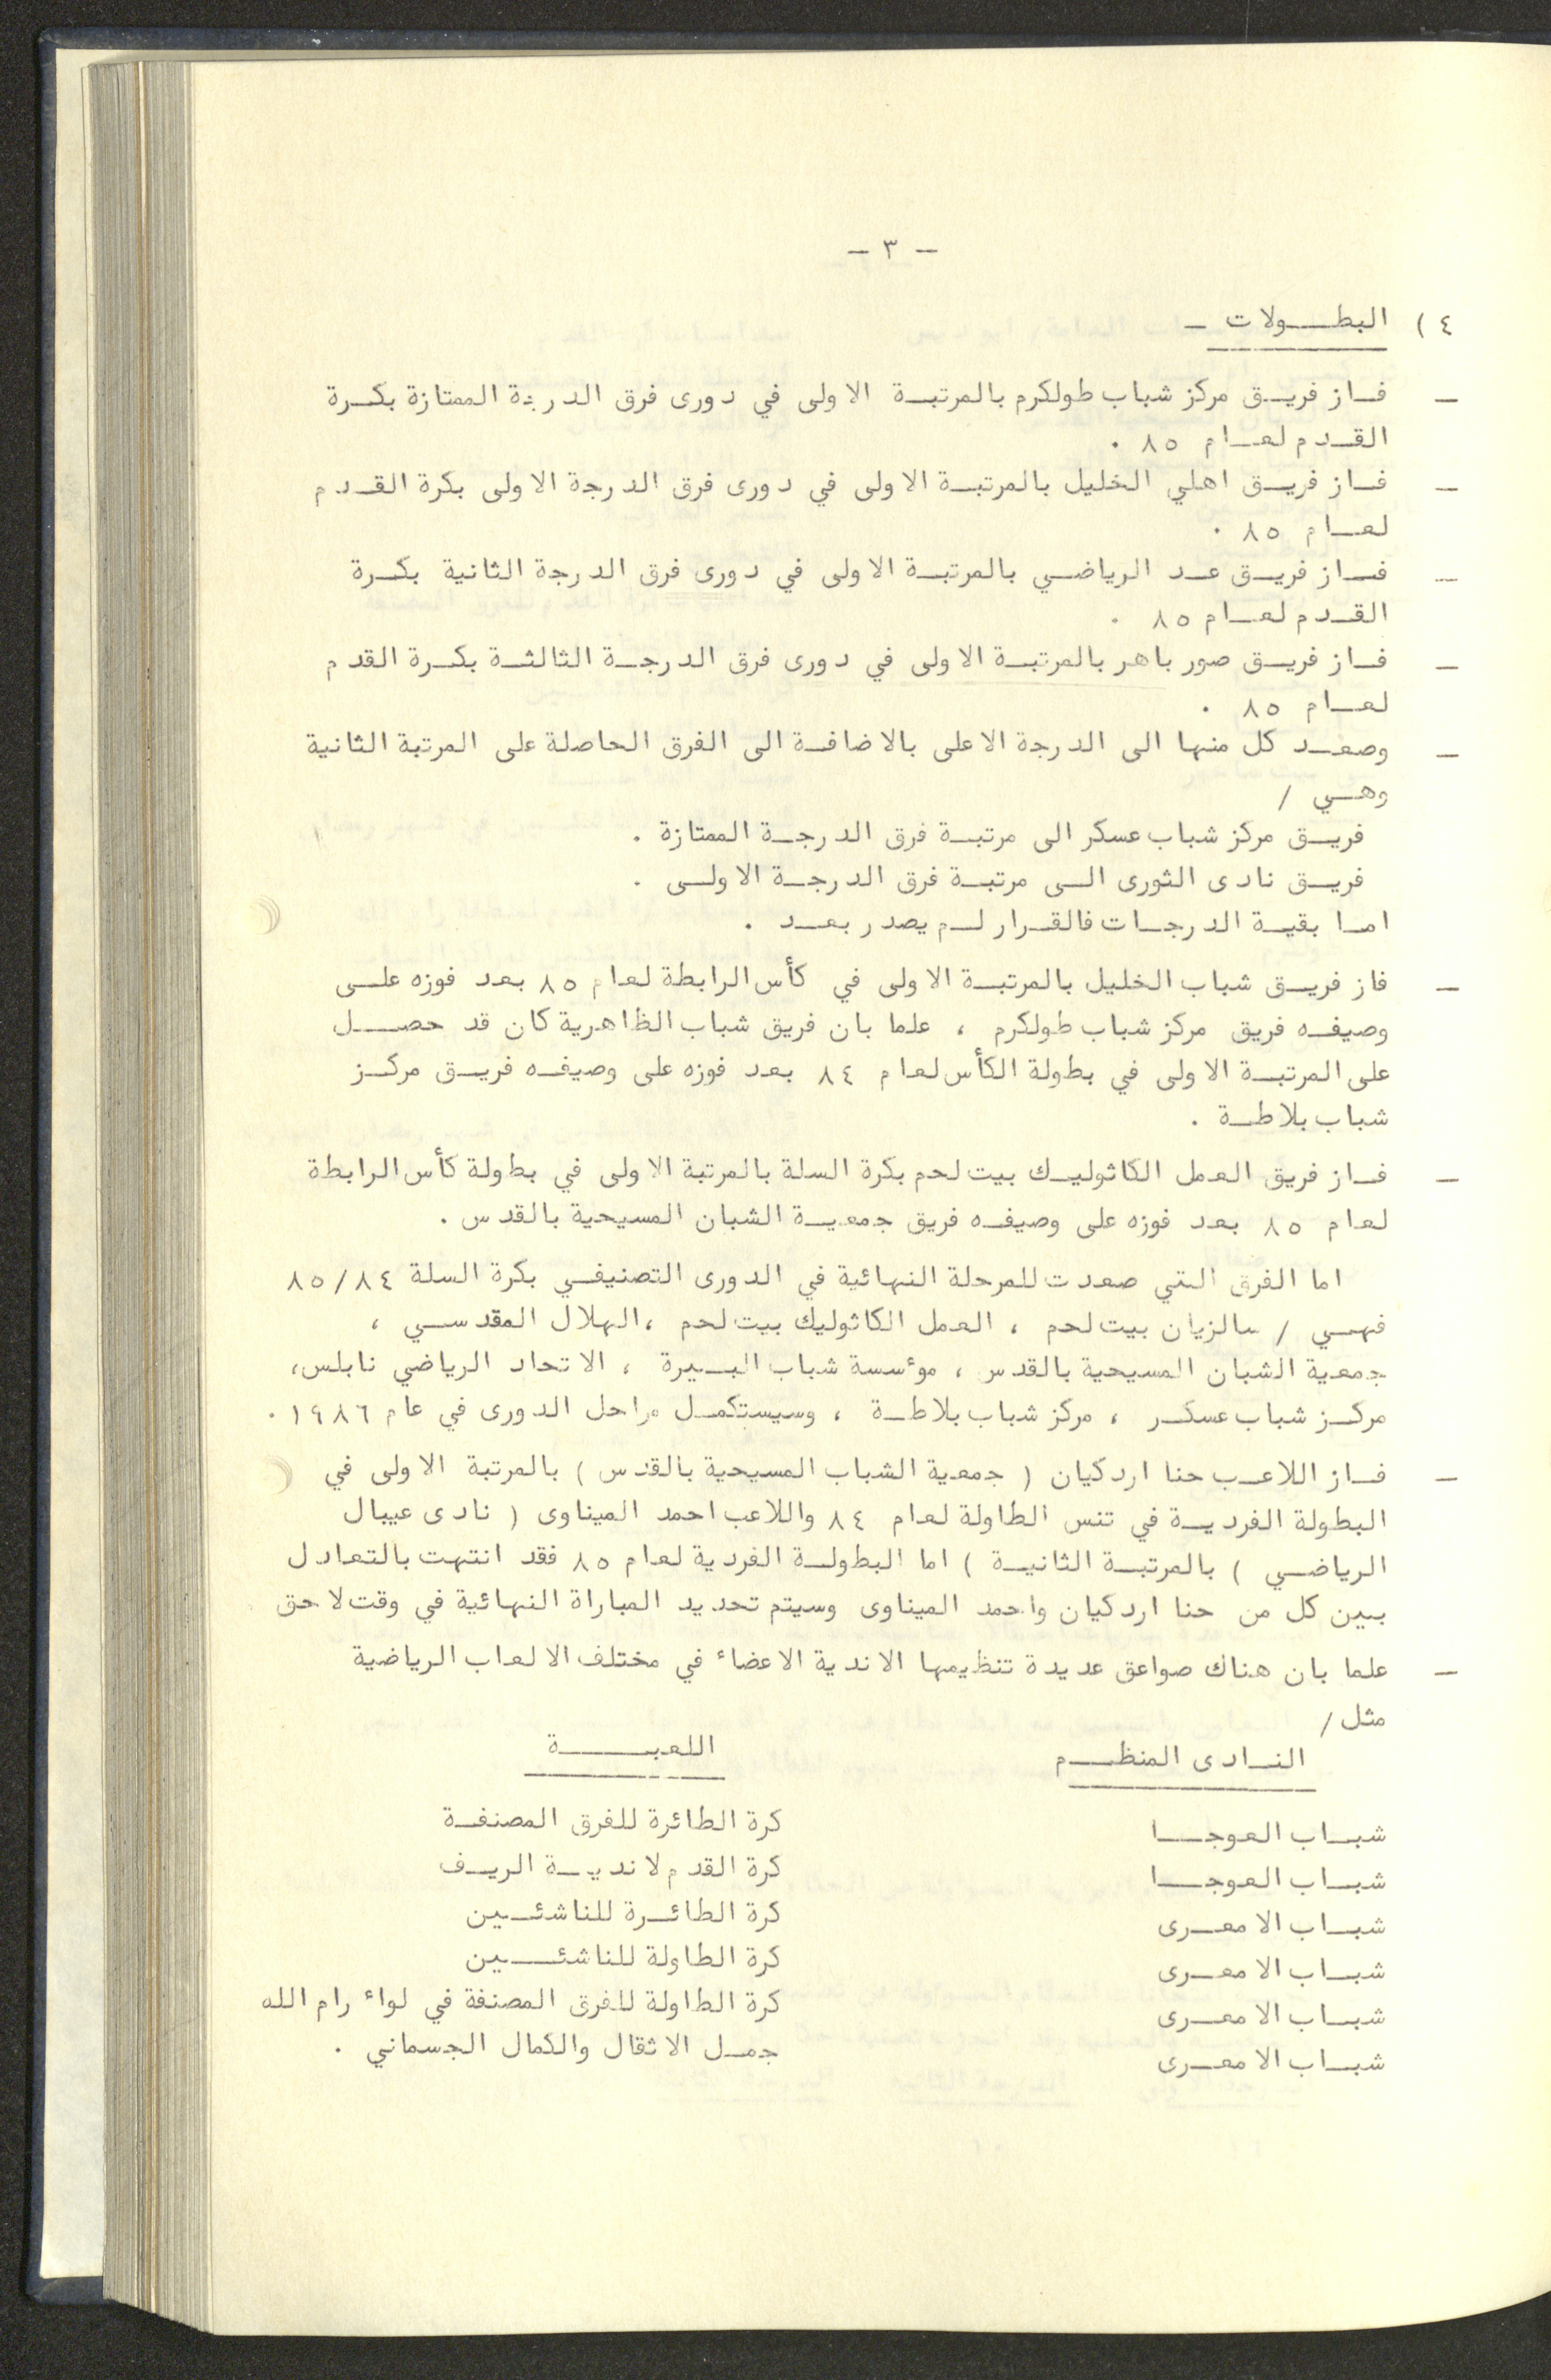 - ٣ -
٤ ) البطـولات -
- فـاز فريـق مركز شباب طولكرم بالمرتبـة الاولى في دورى فرق الدرجة الممتازة بكـرة
القـدم لعـام ٨٥ .
- فـاز فريـق اهلي الخليل بالمرتبـة الاولى في دورى فرق الدرجة الاولى بكرة القـدم
لعـام ٨٥ .
- فـاز فريـق عـد الرياضـي بالمرتبـة الاولى في دورى فرق الدرجة الثانية بكـرة
القـدم لعـام ٨٥ .
- فـاز فريـق صور باهر بالمرتبـة الاولى في دورى فرق الدرجـة الثالثـة بكـرة القدم
لعـام ٨٥ .
- وصعـد كل منها الى الدرجة الاعلى بالاضافـة الى الفرق الحاصلة على المرتبة الثانية
وهـي /
فريـق مركز شباب عسكر الى مرتبـة فرق الدرجـة الممتازة .
فريـق نادى الثورى الـى مرتبـة فرق الدرجـة الاولـى .
امـا بقيـة الدرجـات فالقـرار لـم يصدر بعـد .
- فاز فريـق شباب الخليل بالمرتبـة الاولى في كأس الرابطة لعام ٨٥ بعد فوزه علـى
وصيفـه فريق مركز شباب طولكرم ، علما بان فريق شباب الظاهرية كان قد حصـل
على المرتبـة الاولى في بطولة الكأس لعام ٨٤ بعد فوزه على وصيفـه فريـق مركـز
شباب بلاطـة .
- فـاز فريق العمل الكاثوليـك بيت لحم بكرة السلة بالمرتبة الاولى في بطولة كأس الرابطة
لعام ٨٥ بعد فوزه على وصيفـه فريق جمعيـة الشبان المسيحية بالقدس .
اما الفرق التي صعدت للمرحلة النهائية في الدورى التصنيفـي بكرة السلة ٨٥/٨٤
فهـي / سالزيان بيت لحم ، العمل الكاثوليك بيت لحم ، الهلال المقدسـي ،
جمعية الشبان المسيحية بالقدس ، موءسسة شباب البـيرة ، الاتحاد الرياضي نابلس،
مركـز شباب عسكـر ، مركز شباب بلاطـة ، وسيستكمـل مراحل الدورى في عام ١٩٨٦ .
- فـاز اللاعـب حنا اردكيان ( جمعية الشباب المسيحية بالقدس ) بالمرتبة الاولى في
البطولة الفرديـة في تنس الطاولة لعام ٨٤ واللاعب احمد الميناوى ( نادى عيبال
الرياضـي ) بالمرتبـة الثانيـة ) اما البطولـة الفردية لعام ٨٥ فقد انتهت بالتعادل
بـين كل من حنا اردكيان واحمد الميناوى وسيتم تحديد المباراة النهائية في وقت لاحق
- علما بان هناك صواعق عديدة تنظيمها الاندية الاعضاء في مختلف الالعاب الرياضية
مثل /
النـادى المنظـم اللعبـــة
شبـاب العوجـا كرة الطائرة للفرق المصنفـة
شبـاب العوجـا كرة القدم لانديـة الريـف
شبـاب الامعـرى كرة الطائـرة للناشئـين
شبـاب الامعـرى كرة الطاولة للناشئـــين
شبـاب الامعـرى كرة الطاولة للفرق المصنفة في لواء رام الله
شبـاب الامعـرى جمـل الاثقال والكمال الجسماني .